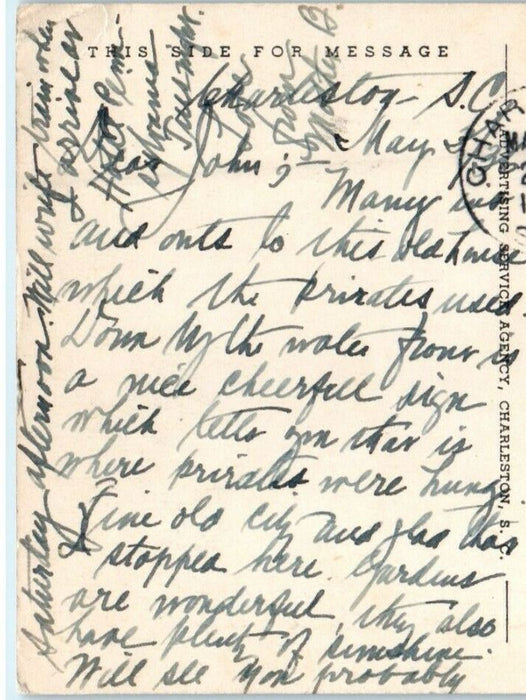 THIS SIDE FOR MESSAGE
Charleston - S.C.
May
Dear John;
Many ins
and outs to this old house
which the pirates used.
Down by the water front is
a nice cheerfull sign
which tells you that is
where pirates were hung
Fine old city and glad
I stopped here Gardens
are wonderful, they also
have plenty of sunshine.
Will see you probably
Saturday afternoon. Will write again when
I arrive
Hello
CHAR
ADVERTISING SERVICE AGENCY, CHARLESTON, S. C.